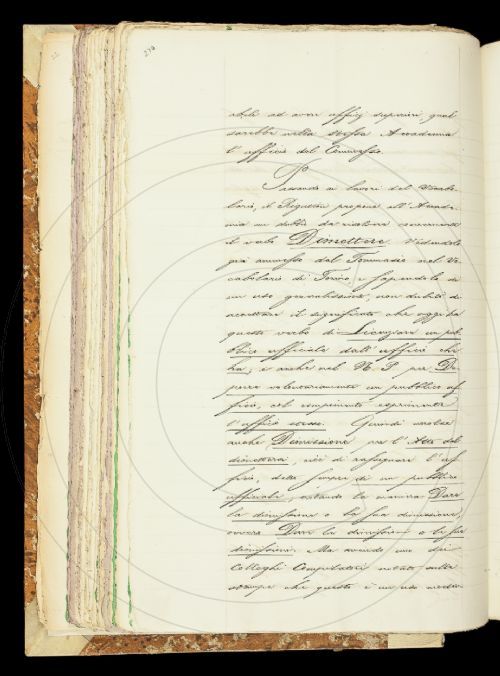 abile ad averi afficj superiori, qual
sarebbe nella stessa Accademia
l'afficio del
Passando ai lavori del Vocabo-
lario, il Rigutini propone all'Accade-
mia un dubbio da risolvere concernente
il verbo Dimettere. Vedendolo
già ammesso dal Tommaseo nel Vo-
cabolario di Torino e sapendolo di
un uso generalissimo, non dubitò di
accettare il significato che oggi ha
questo verbo di Licenziare un pub-
blico ufficiale dall'ufficio che
ha, e anche nel N. P. per De-
porre volontariamente un pubblico uf-
ficio, col compimento esprimente
l'ufficio stesso. Quindi
anche Dimissione per l'Atto del
dimettersi, cioè di rassegnare l'uf-
ficio, detto sempre di un pubblico
ufficiale, notando la maniera Dare
la dimissione o la sua dimissione,
ovvero Dare le dimissioni o le sue
dimissioni. Ma avendo uno dei
Colleghi Compilatori notato sulle
stampe che questo è un uso